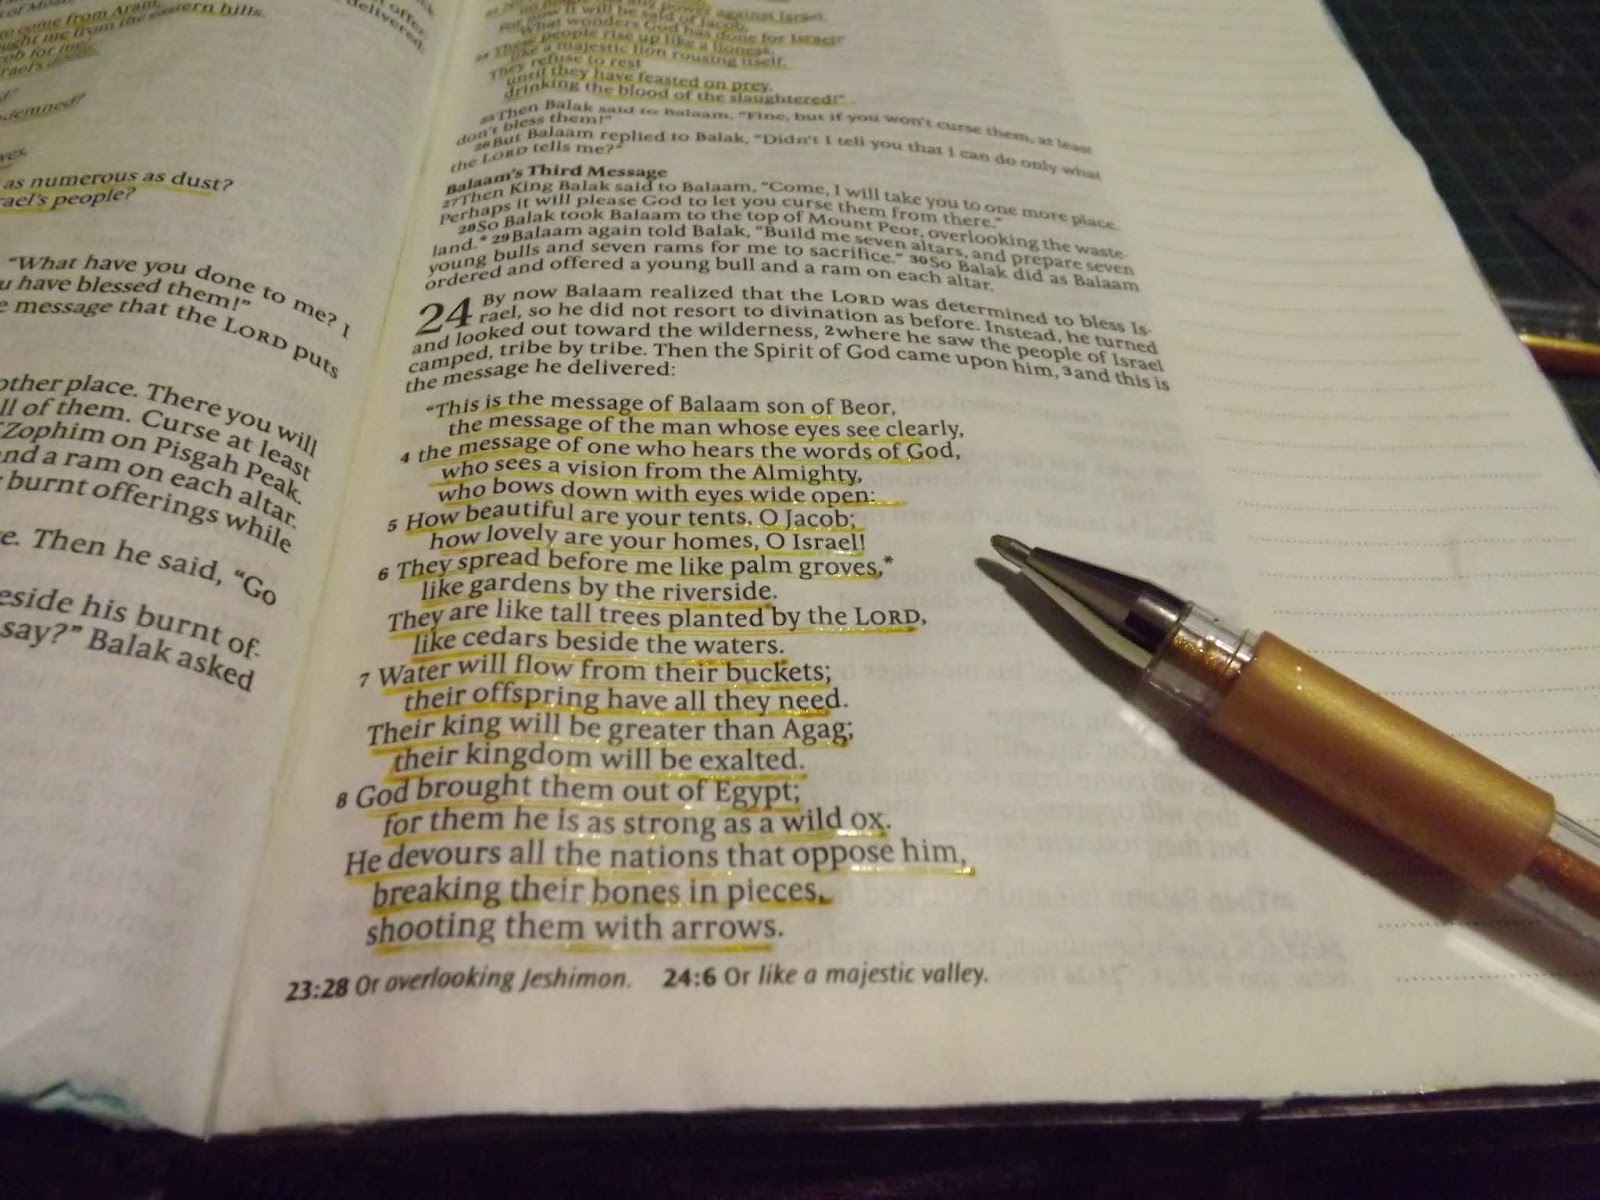 to come from Aram,
me from the eastern hills.
delivered:
demned?
as numerous as dust?
people?
"What have you done to me? I
have blessed them!"
message that the LORD puts
place. There you will
of them. Curse at least
Zophim on Pisgah Peak.
and a ram on each altar.
burnt offerings while
Then he said, "Go
his burnt of-
say?" Balak asked
against Israel.
For now it will be said of Jacob,
'What wonders God has done for Israel!'
24 These people rise up like a lioness,
like a majestic lion rousing itself.
They refuse to rest
until they have feasted on prey,
drinking the blood of the slaughtered!"
25 Then Balak said to Balaam, "Fine, but if you won't curse them, at least
don't bless them!"
26 But Balaam replied to Balak, "Didn't I tell you that I can do only what
the LORD tells me?"
Balaam's Third Message
27 Then King Balak said to Balaam, "Come, I will take you to one more place.
Perhaps it will please God to let you curse them from there."
28 So Balak took Balaam to the top of Mount Peor, overlooking the waste-
land.* 29 Balaam again told Balak, "Build me seven altars, and prepare seven
young bulls and seven rams for me to sacrifice." 30 So Balak did as Balaam
ordered and offered a young bull and a ram on each altar.
24 By now Balaam realized that the LORD was determined to bless Is-
rael, so he did not resort to divination as before. Instead, he turned
and looked out toward the wilderness, 2 where he saw the people of Israel
camped, tribe by tribe. Then the Spirit of God came upon him, 3 and this is
the message he delivered:
"This is the message of Balaam son of Beor,
the message of the man whose eyes see clearly,
4 the message of one who hears the words of God,
who sees a vision from the Almighty,
who bows down with eyes wide open:
5 How beautiful are your tents, O Jacob;
how lovely are your homes, O Israel!
6 They spread before me like palm groves,*
like gardens by the riverside.
They are like tall trees planted by the LORD,
like cedars beside the waters.
7 Water will flow from their buckets;
their offspring have all they need.
Their king will be greater than Agag;
their kingdom will be exalted.
8 God brought them out of Egypt;
for them he is as strong as a wild ox.
He devours all the nations that oppose him,
breaking their bones in pieces,
shooting them with arrows.
23:28 Or overlooking Jeshimon. 24:6 Or like a majestic valley.